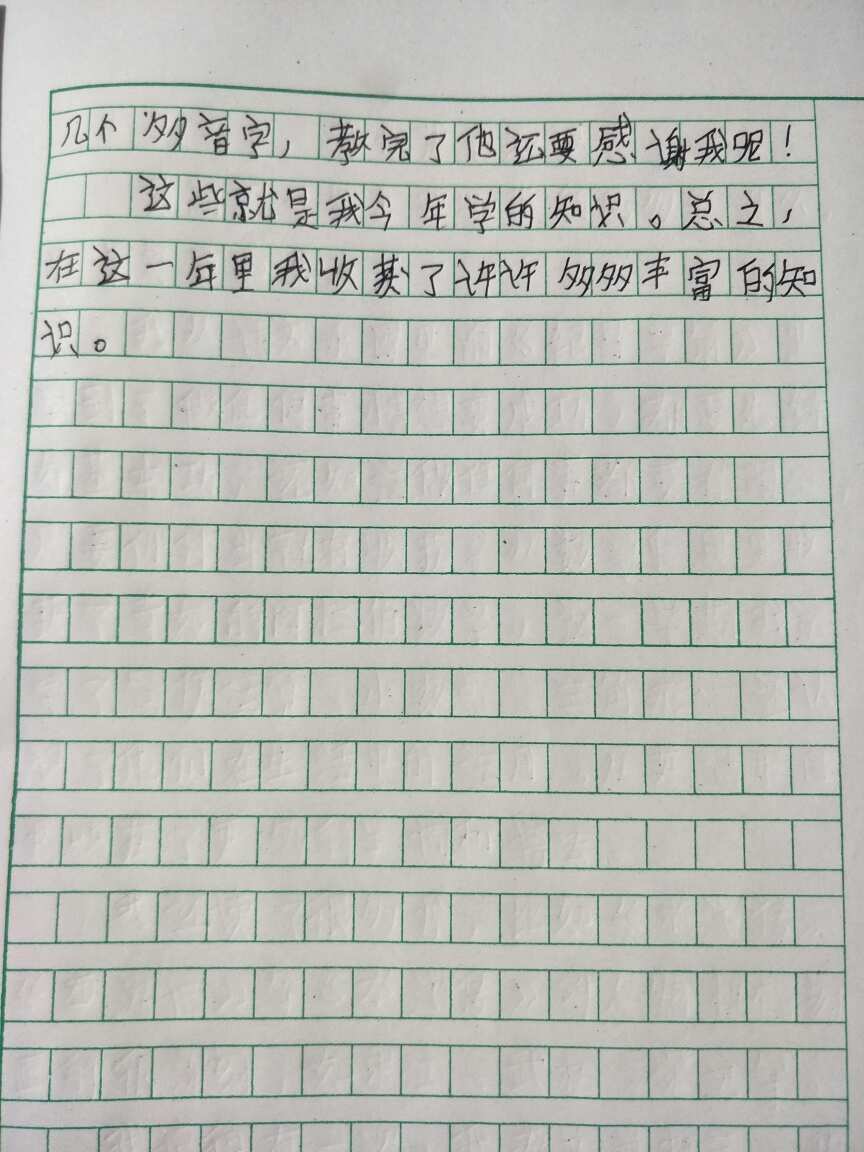 几个多音字，教完了他还要感谢我呢！
这些就是我今年学的知识。总之，
在这一年里我收获了许许多多丰富的知
识。